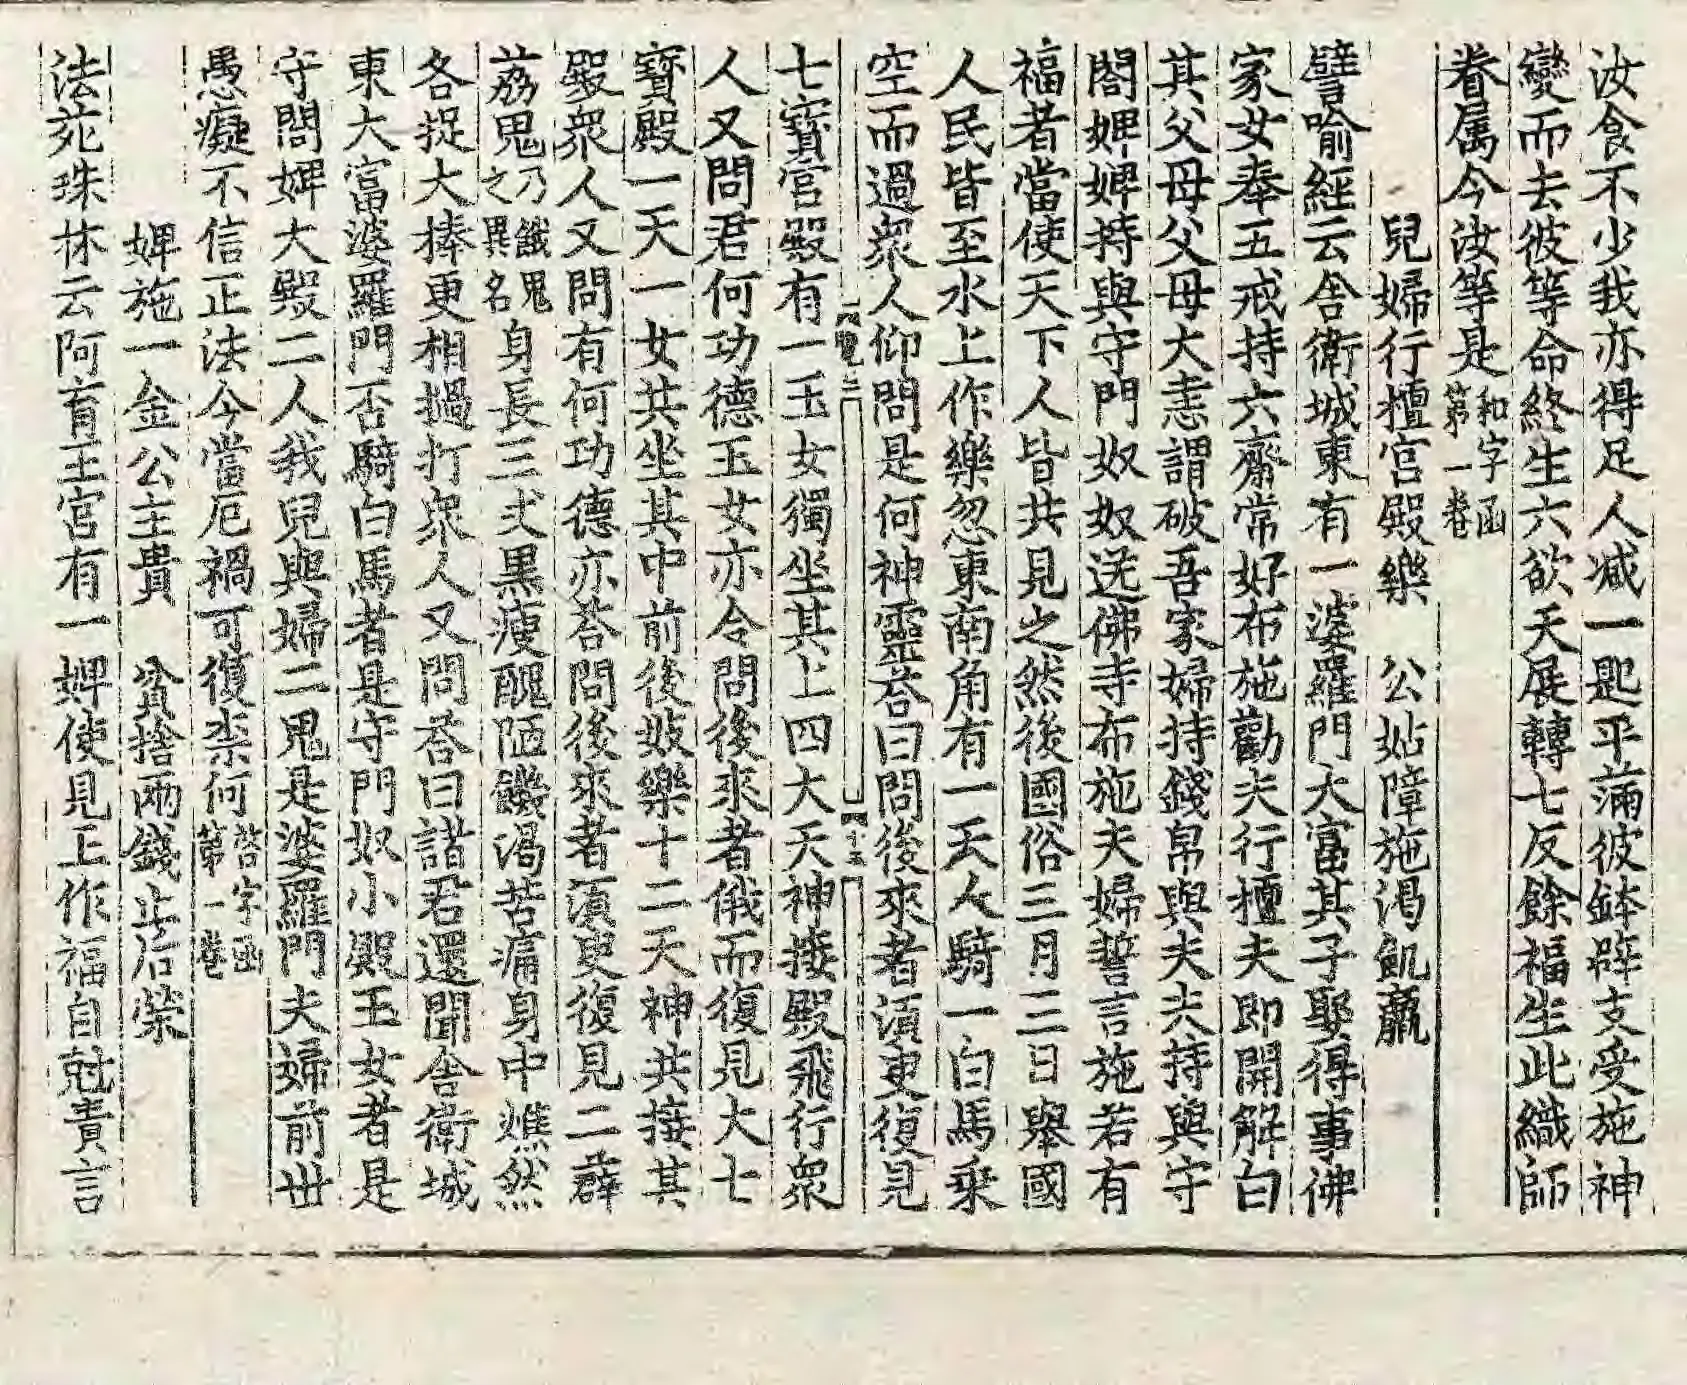 汝食不少我亦得足人减一匙平滿彼鉢辟支受施神
變而去彼等命終生六欲天展轉七反餘福生此織師
眷属今汝等是和字函第一卷
兒婦行檀宫殿樂 公姑障施渴飢羸
譬喻經云舍衛城東有一婆羅門大富其子娶得事佛
家女奉五戒持六齋常好布施勸夫行檀夫即開解白
其父母父母大恚謂破吾家婦持錢帛與夫夫持與守
閤婢婢持與守門奴奴送佛寺布施夫婦誓言施若有
福者當使天下人皆共見之然後國俗三月三日舉國
人民皆至水上作樂忽東南角有一天人騎一白馬乗
空而過衆人仰問是何神靈荅曰問後來者湏臾復見
七寳宫殿有一玉女獨坐其上四大天神接殿飛行衆
人又問君何功德玉女亦令問後來者俄而復見大七
寳殿一天一女共坐其中前後妓樂十二天神共接其
殿衆人又問有何功德亦荅問後來者湏臾復見二薜
荔鬼乃餓鬼之異名身長三丈黒瘦醜陋饑渴苦痛身中燋然
各捉大捧更相撾打衆人又問荅曰諸君還聞舍衛城
東大富婆羅門否騎白馬者是守門奴小殿玉女者是
守閤婢大殿二人我兒與婦二鬼是婆羅門夫婦前世
愚癡不信正法今當厄禍可復柰何荅字函第一卷
婢施一金公主貴 貧捨兩錢𠀋后榮
法苑珠林云阿育王宫有一婢使見王作福自尅責言